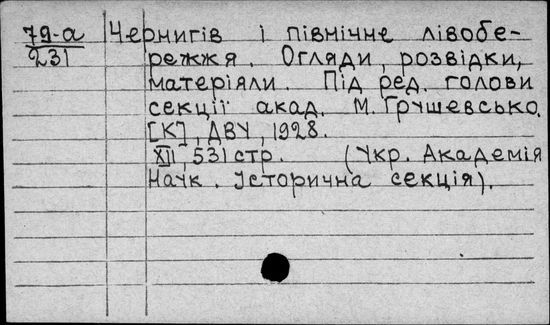 79-а Чернигів і північне лівобе-
231 режжя. Огляди, розвідки,
матеріяли. Під ред. голови
секції акад. М. Грушевсько.
[К], ДВУ, 1928.
XII, 531 стр. (Укр. Академія
Наук. Історична секція).